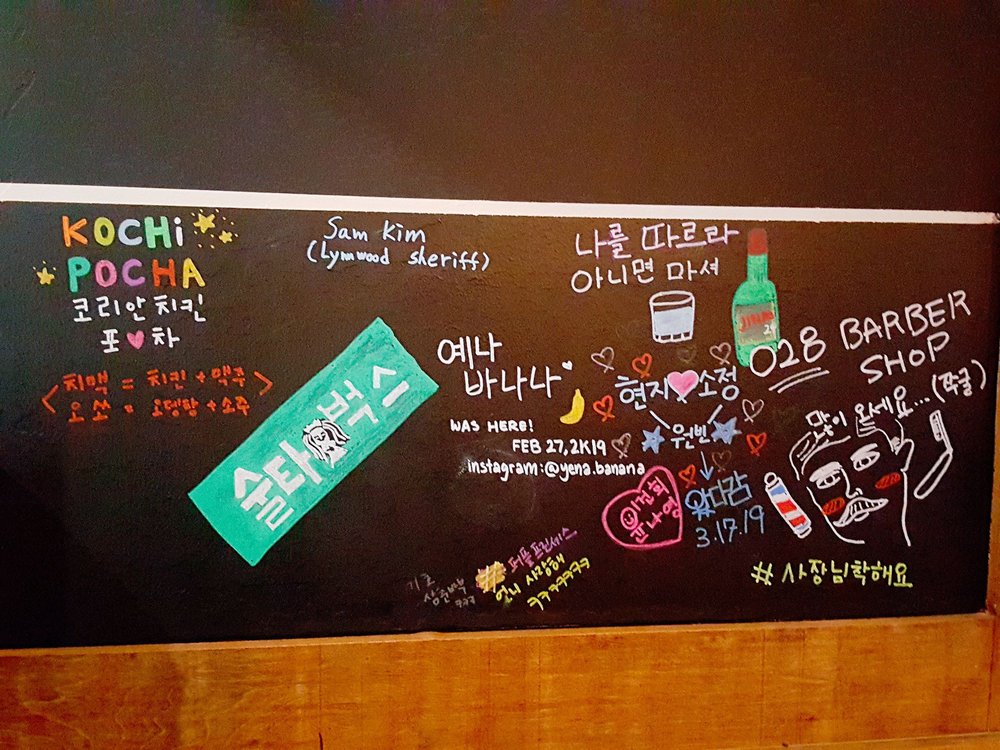 KOCHi
POCHA
코리안 치킨
포 차
<치맥 = 치킨 + 맥주>
<오쏘 = 오뎅탕 + 소주>
Sam Kim
(Lynwood sheriff)
술타벅스
예나
바나나
WAS HERE!
FEB 27, 2K19
instagram: @yena.banana
나를 따르라
아니면 마셔
현지 소정
원빈
왔다감
3.17.19
이건희
윤나영
028 BARBER
SHOP
많이 오세요... (쭈굴)
#사장님착해요
#퍼플프린세스
언니 사랑해
ㅋㅋㅋㅋㅋㅋ
ㅋㅋㅋ